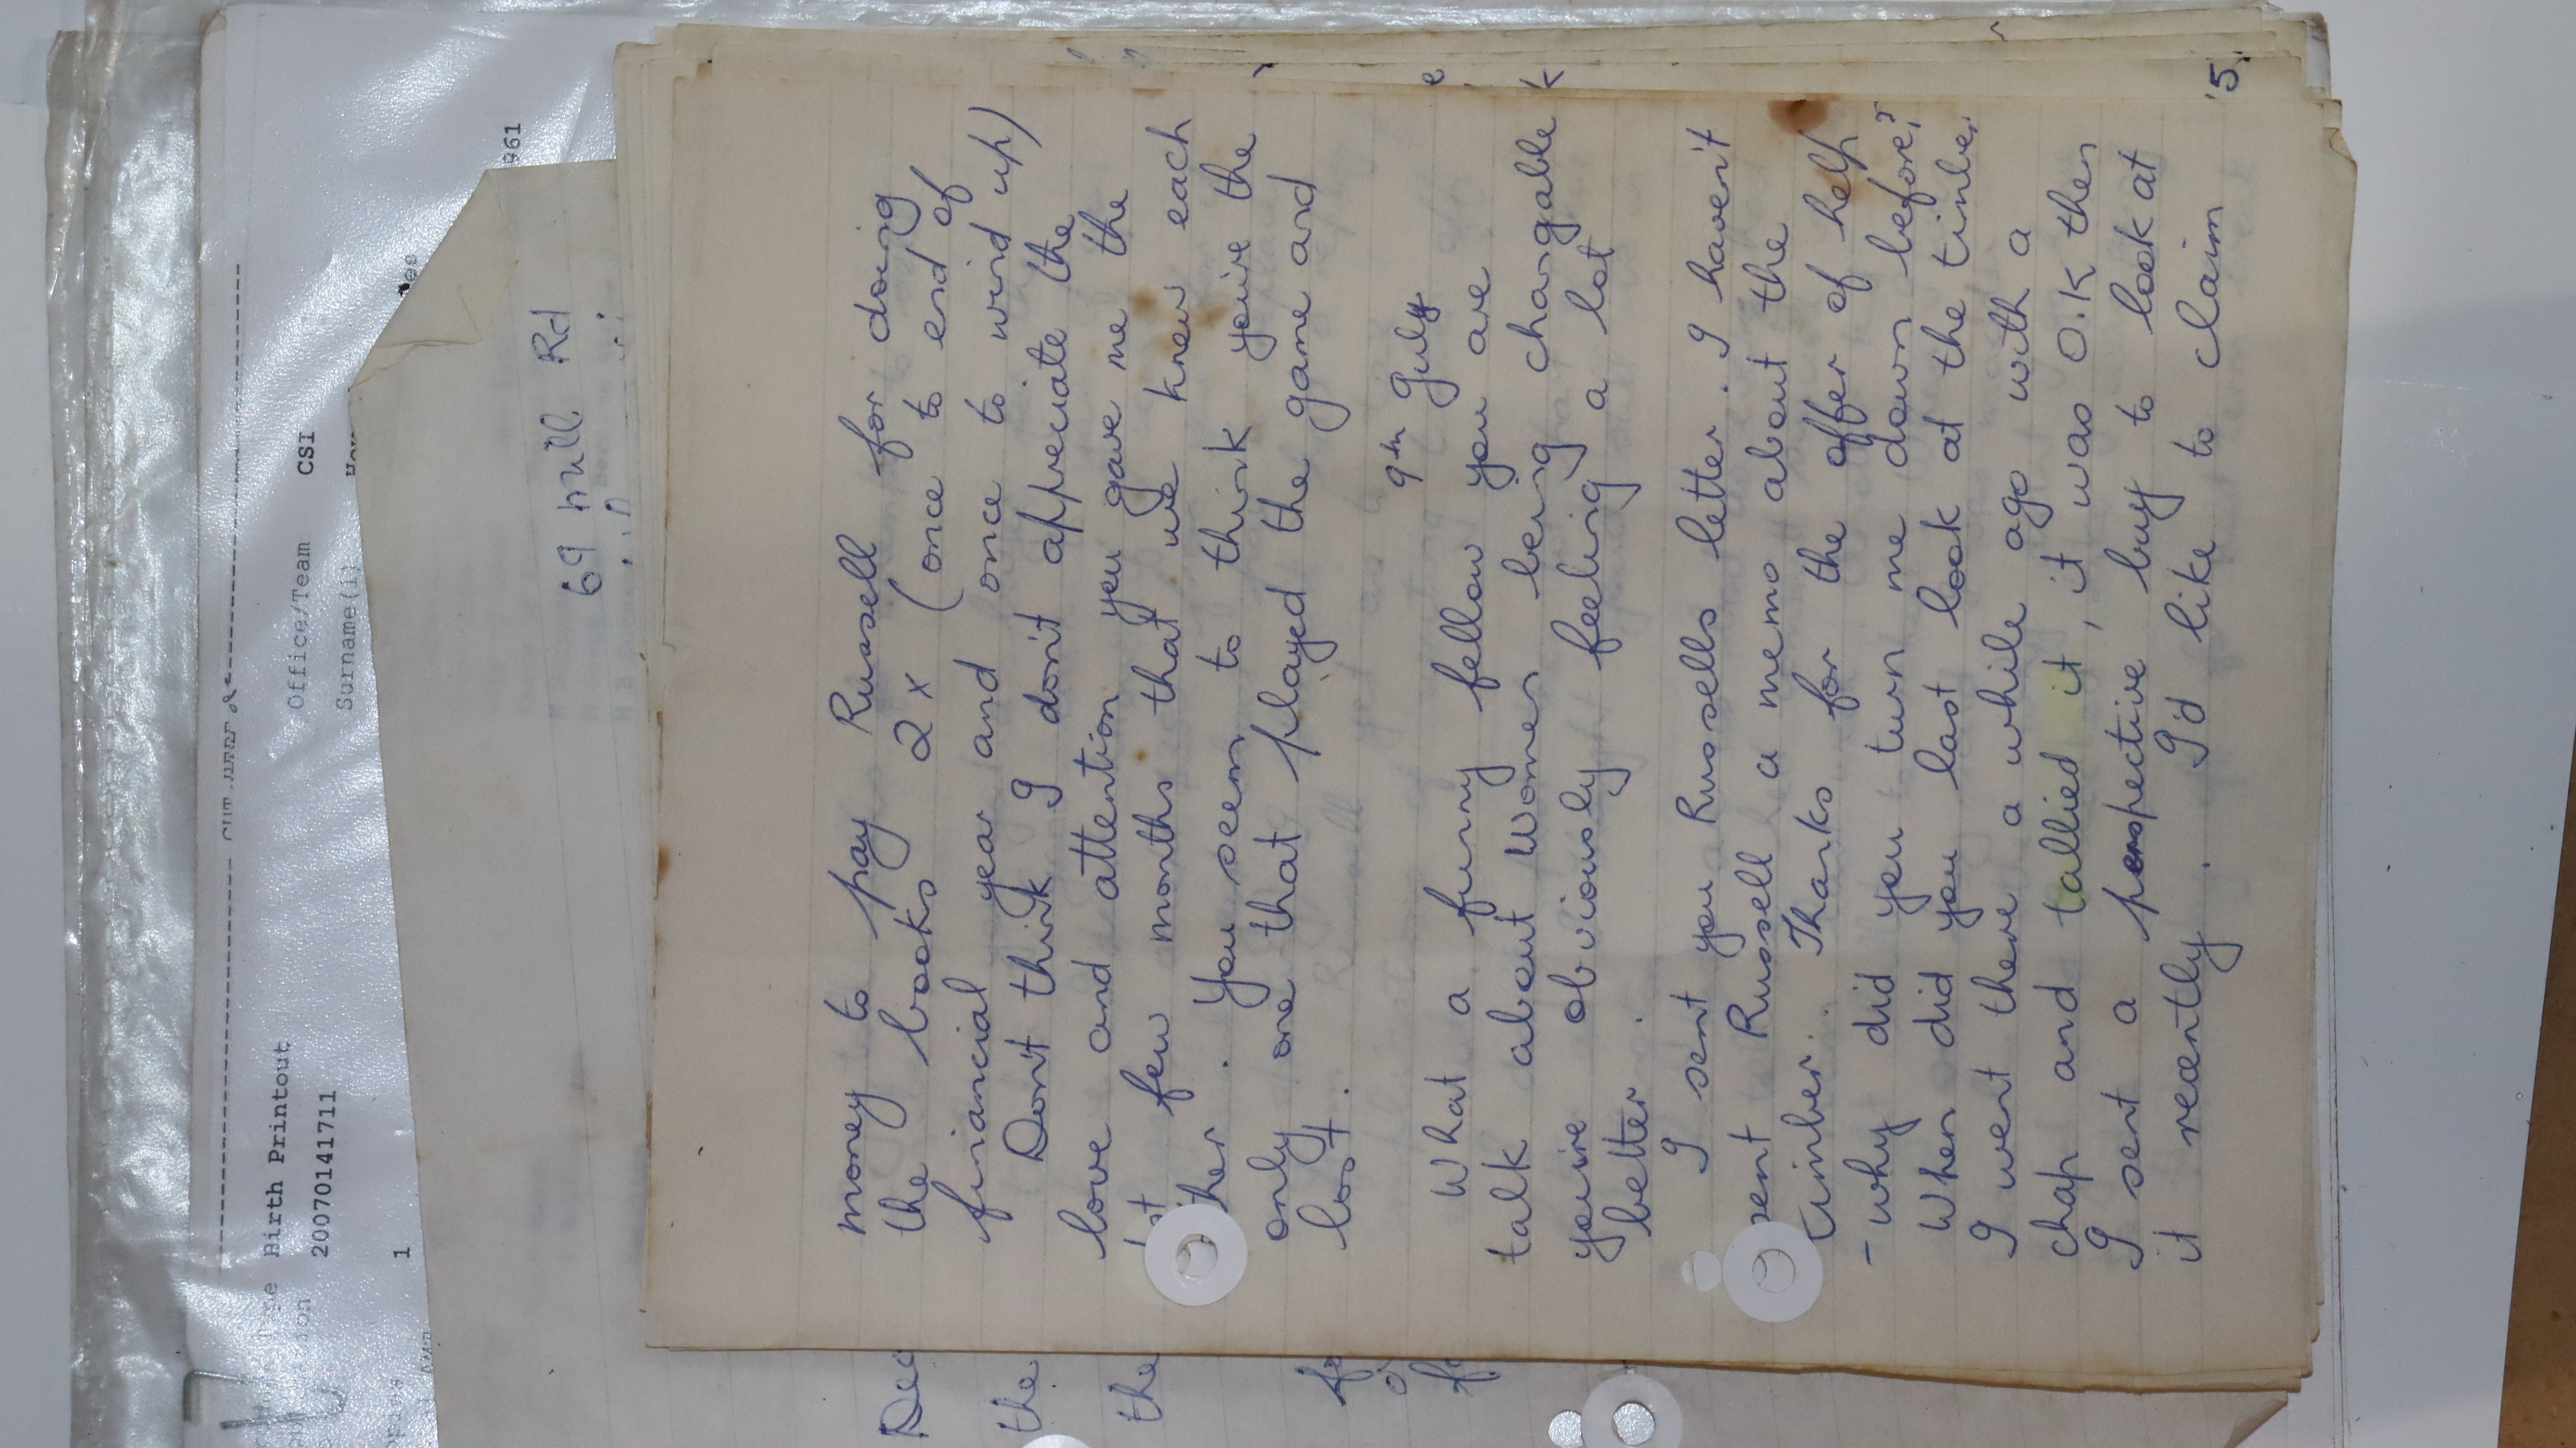 Birth Printout
20070141711
1
Office/Team CSI
Surname(i)
961
69 hill Rd
money to pay Russell for doing
the books 2x (once to end of
financial year and once to wind up)
Don't think I don't appreciate the
love and attention you gave me the
few months that we knew each
. You seem to think you're the
only one that played the game and
lost.
9th July
What a funny fellow you are
talk about women being changable
you're obviously feeling a lot
better.
I sent you Russells letter. I haven't
sent Russell a memo about the
timber. Thanks for the offer of help
- why did you turn me down before?
When did you last look at the timber
I went there a while ago with a
chap and tallied it, it was O.K then
I sent a pospective buy to look at
it recently. I'd like to claim
5.
the
the